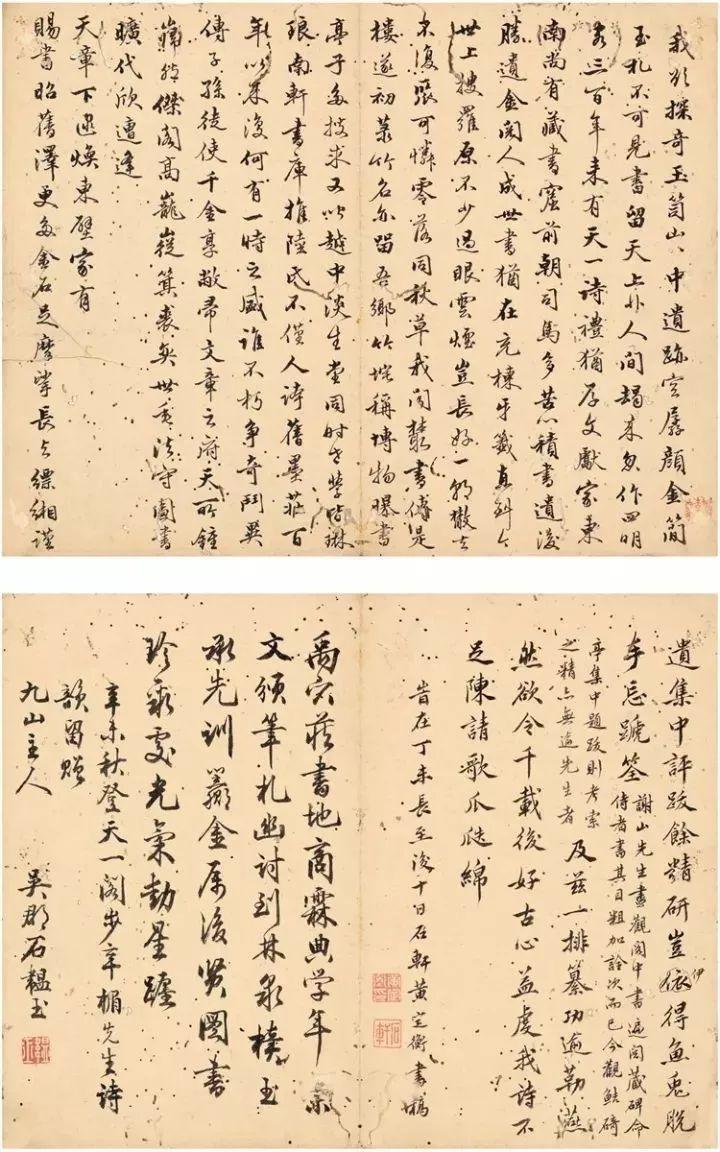 我欲探奇玉笥山山中遺跡空孱顏金簡
玉札不可見書留天上非人間朅來忽作四明
客三百年來有天一詩禮猶存文獻家東
南尚有藏書窟前朝司馬多苦心積書遺後
勝遺金閱人成世書猶在充棟牙籤直到今
世上搜羅原不少過眼雲煙豈長好一朝散去
不復聚可憐零落同秋草我聞叢書傳是
樓遂初菉竹名亦留吾鄉竹垞稱博物曝書
亭子多搜求又此越中淡生堂同時老學皆琳
琅南軒書庫推陸氏不僅人誇舊墨莊百
年以來復何有一時之盛誰不朽爭奇鬥異
傳子孫徒使千金享敝帚文章之府天所鍾
巋然傑閣高巃嵷箕裘奕世重法守圖書
曠代欣遭逢
天章下逮煥東壁家有
賜書昭舊澤更多金石足摩挲長與縹緗謹
遺集中評跋餘精研豈依得魚兔脫
伊
手忘蹏筌謝山先生盡觀閣中書遍閱藏碑命
侍者書其目粗加詮次而已今觀鮚埼
亭集中題跋則考索
之精亦無逾先生者及茲一排纂功逾勒燕
然欲令千載後好古心益虔我詩不
足陳請歌瓜瓞綿
旹在丁未長至後十日石軒黃定衡書稿
禹穴藏書地商霖典學年
文須筆札幽討到林泉積玉
承先訓籯金厲後賢圖書
珍秘處光氣動星躔
辛未秋登天一閣步辛楣先生詩
韻留贈
九山主人
吳郡石韞玉